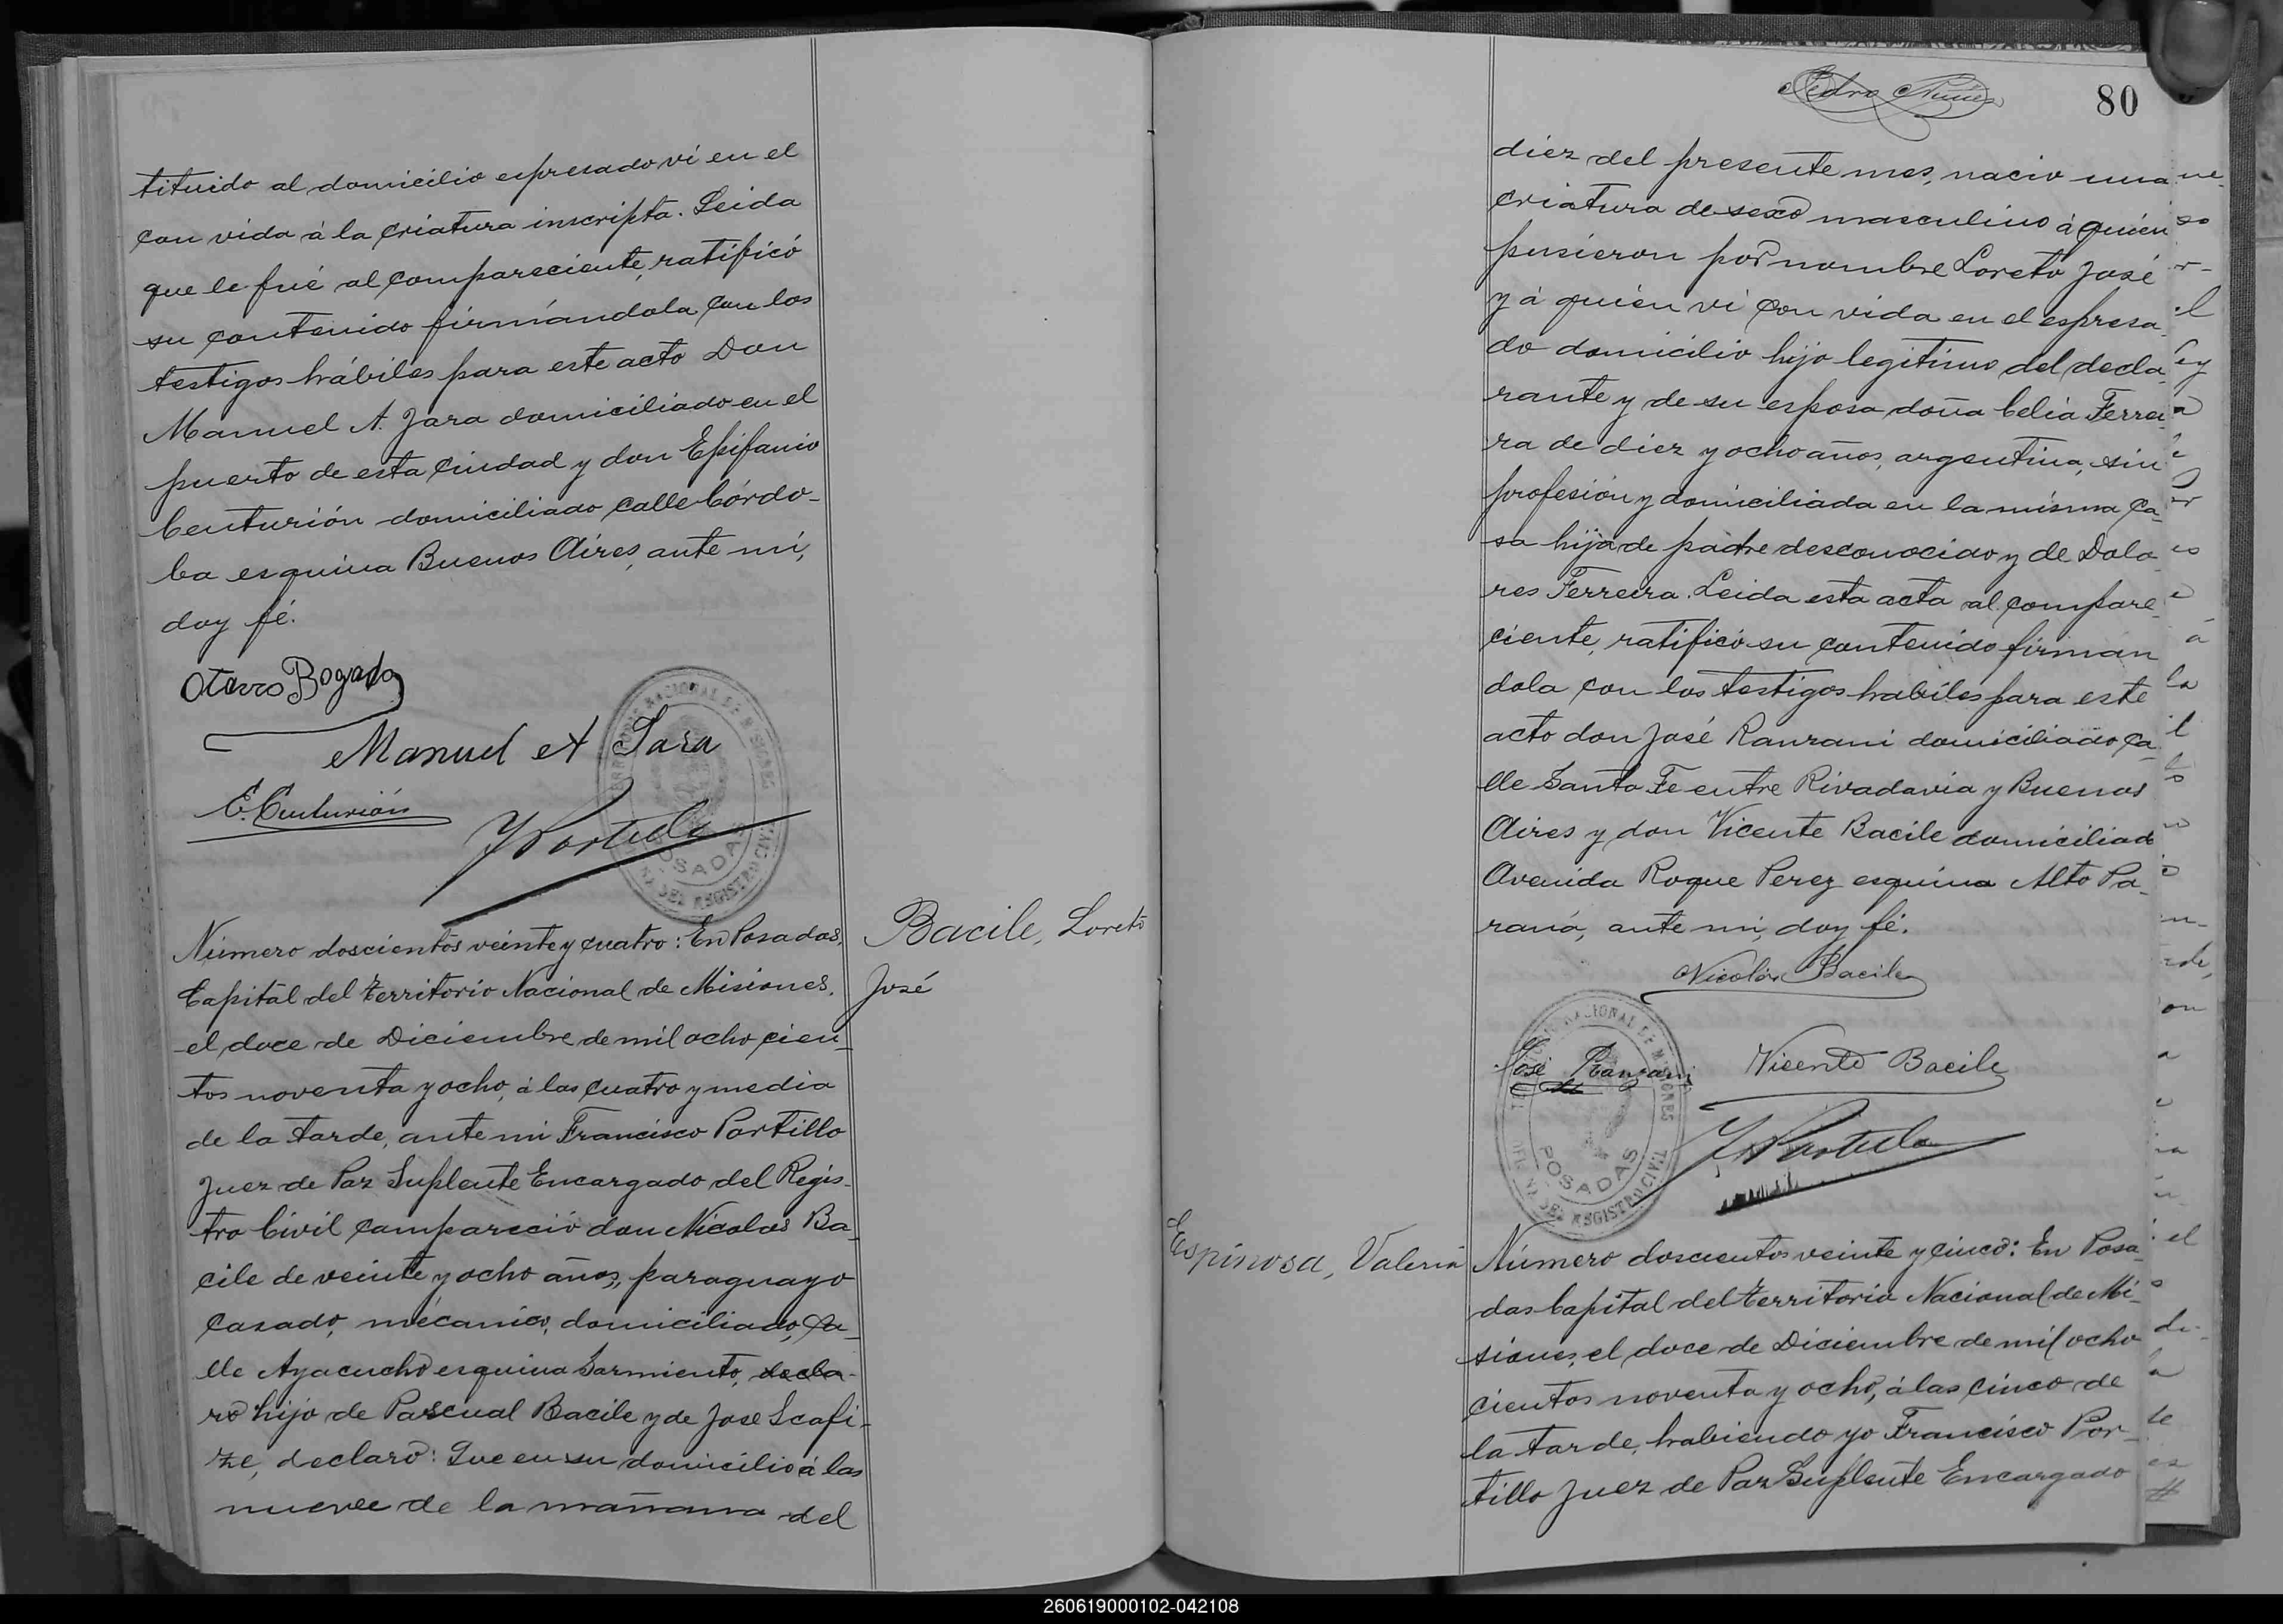 tituido al domicilio espresado vi en el
con vida á la criatura inscripta. Leida
que le fué al compareciente, ratificó
su contenido firmándola con los
testigos hábiles para este acto Don
Manuel A. Jara domiciliado en el
puerto de esta ciudad y don Epifanio
Centurión domiciliado calle Córdo-
ba esquina Buenos Aires, ante mi,
doy fé.
Otavro Bogado
Manuel A Jara
E. Centurión
F Portillo
POSADAS
Número doscientos veinte y cuatro: En Posadas,
Capital del Territorio Nacional de Misiones,
el doce de Diciembre de mil ocho cien-
tos noventa y ocho, á las cuatro y media
de la tarde, ante mi Francisco Portillo
Juez de Paz Suplente Encargado del Regis-
tro Civil compareció don Nicolas Ba-
cile de veinte y ocho años, paraguayo
casado, mecanico, domiciliado, ca-
lle Ayacucho esquina Sarmiento, decla-
ró hijo de Pascual Bacile y de José Scafi-
ze, declaró: Que en su domicilio á las
nueve de la mañana del
Bacile, Loreto
José
80
diez del presente mes, nacio una
criatura de sexo masculino á quien
pusieron por nombre Loreto José
y á quién vi con vida en el espresa-
do domicilio hijo legitimo del decla-
rante y de su esposa doña Celia Ferrei-
ra de diez y ocho años, argentina, sin
profesión y domiciliada en la misma ca-
sa hija de padre desconocido y de Dolo-
res Ferreira. Leida esta acta al compare-
ciente, ratificó su contenido firman
dola con los testigos habiles para este
acto don José Ranzani domiciliado ca-
lle Santa Fe entre Rivadavia y Buenos
Aires y don Vicente Bacile domiciliado
Avenida Roque Perez esquina Alto Pa-
raná, ante mi, doy fé.
Nicolás Bacile
José Ranzani
Vicente Bacile
F Portillo
POSADAS
Espinosa, Valeria
Número doscientos veinte y cinco: En Posa-
das Capital del Territorio Nacional de Mi-
siones, el doce de Diciembre de mil ocho
cientos noventa y ocho, á las cinco de
la tarde, habiendo yo Francisco Por-
tillo Juez de Paz Suplente Encargado
260619000102-042108